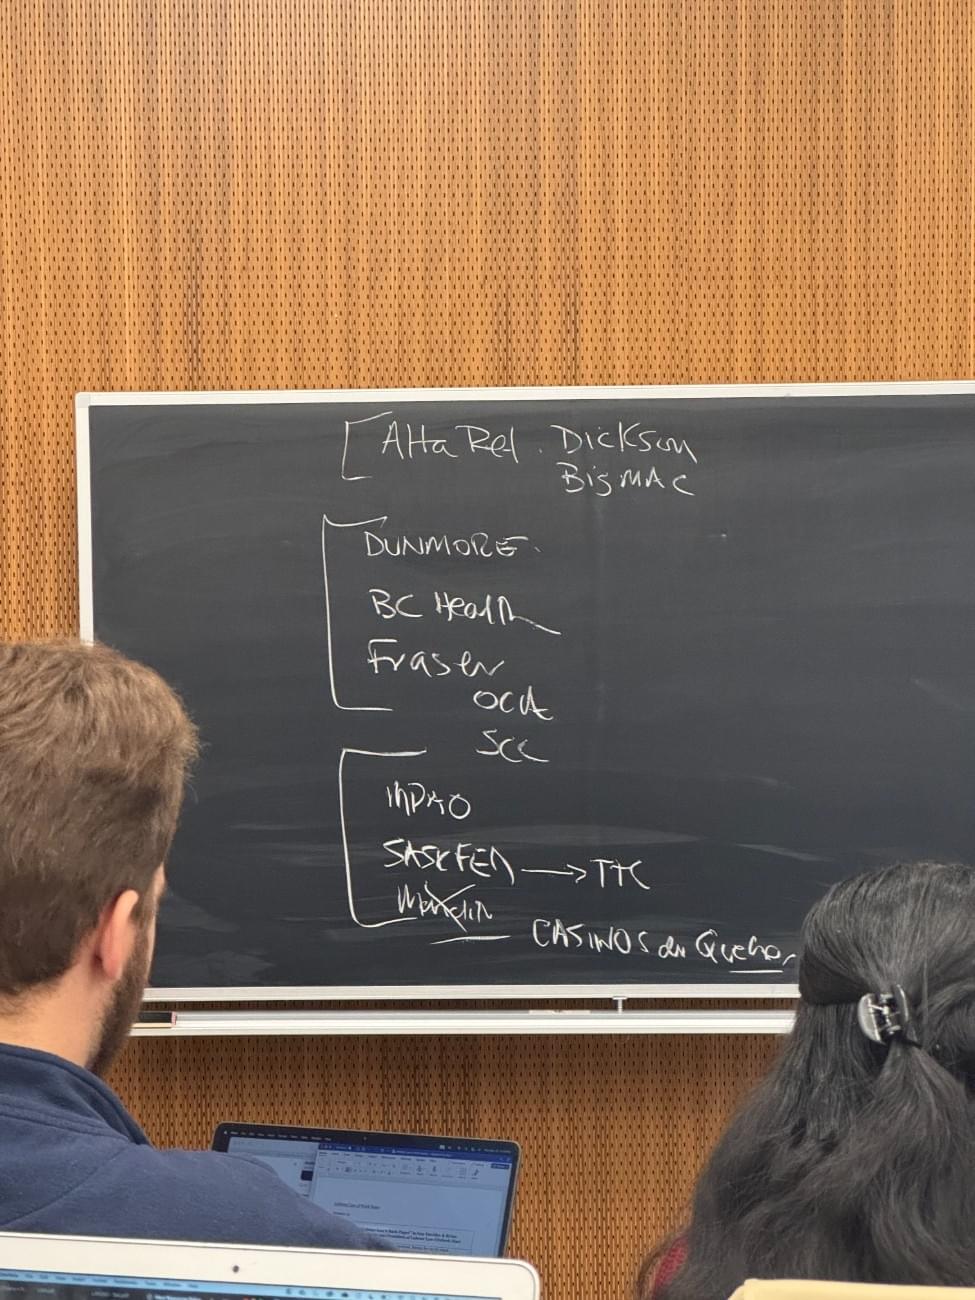 Alta Ref. Dickson
BIGMAC
DUNMORE.
BC Health
Fraser
OCA
SCC
MPAO
SASKFED → TTC
CASINOS du Québec